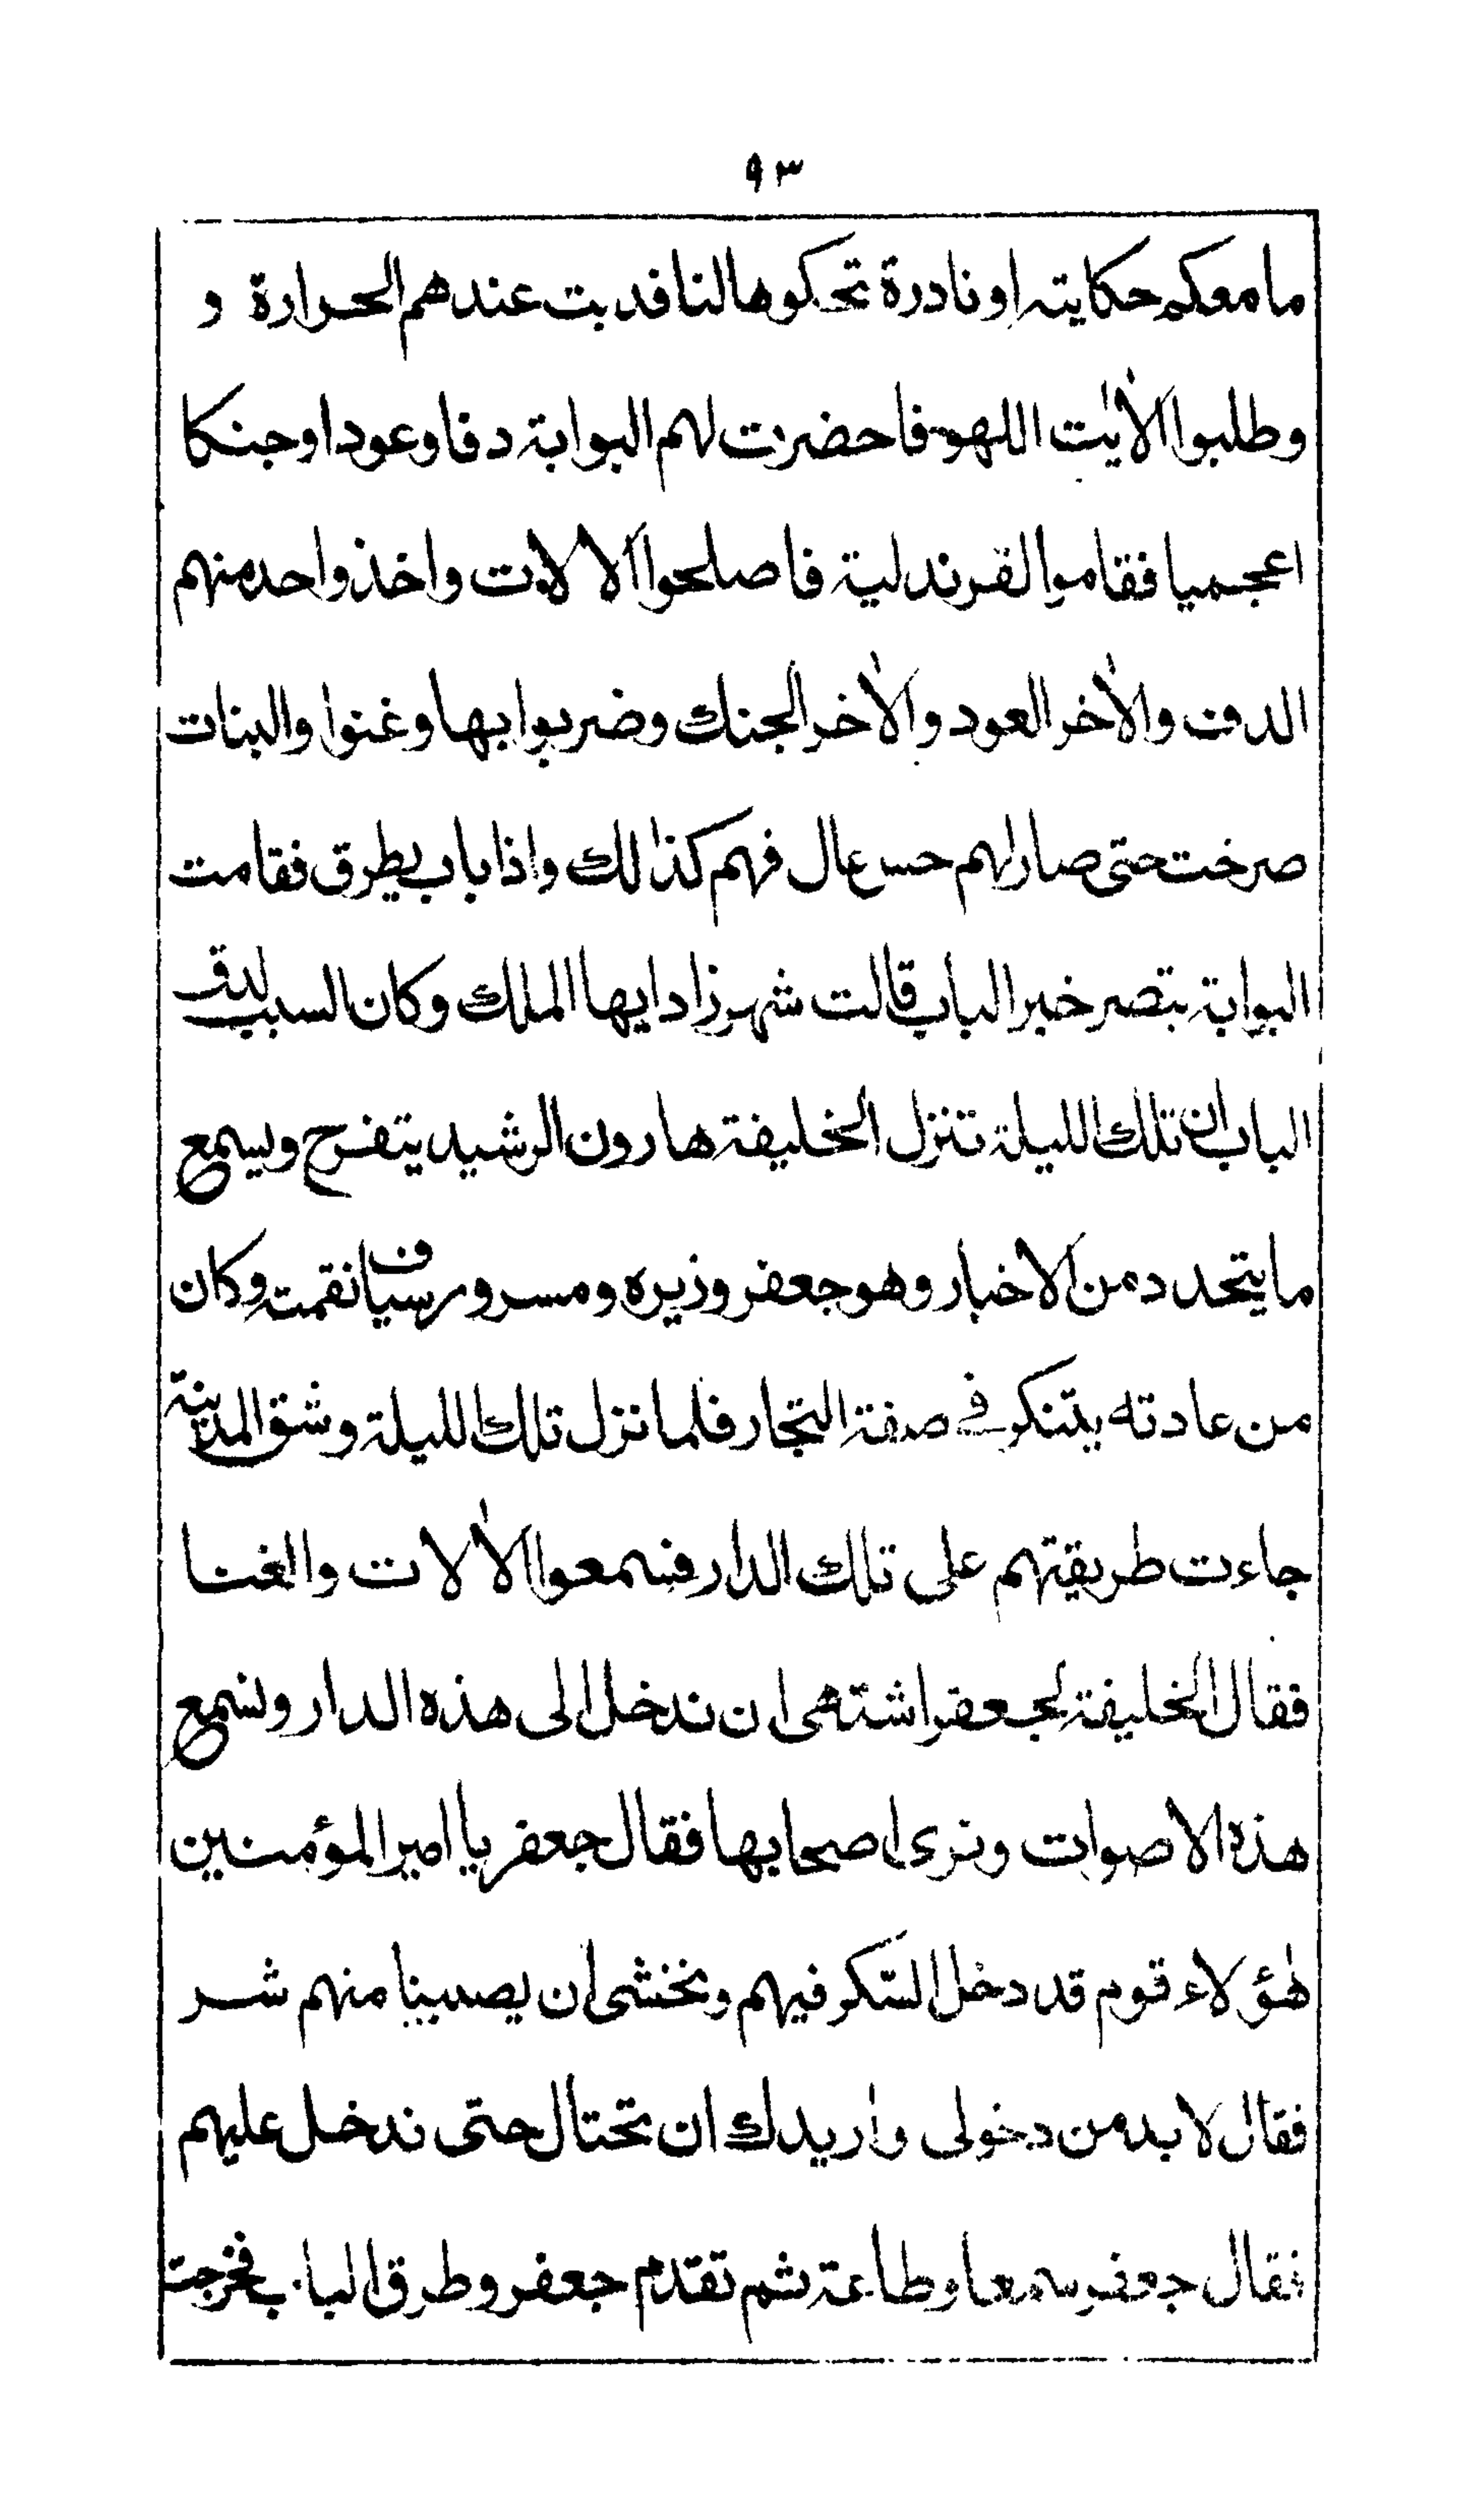 ٩٣
ما معكم حكاية او نادرة تحكوها لنا فدبت عندهم الحرارة و
وطلبوا الأيت اللهو فاحضرت لهم البوابة دفا وعودا وجنكا
اعجميا فقاموا القرندلية فاصلحوا الالات واخذ واحد منهم
الدف والأخر العود والأخر الجنك وضربوا بها وغنوا والبنات
صرخت حتى صار لهم حس عال فهم كذالك واذا باب يطرق فقامت
البوابة تبصر خبر الباب قالت شهرزاد ايها الملك وكان السبب لدق
الباب ان تلك الليلة تنزل الخليفة هارون الرشيد يتفرح ويسمع
ما يتحدد من الاخبار وهو جعفر وزيره ومسرور سياف نقمته وكان
من عادته يتنكر في صفة التجار فلما نزل تلك الليلة وشق المدينة
جاءت طريقتهم على تلك الدار فسمعوا الألات والغنا
فقال الخليفة لجعفر اشتهى ان ندخل الى هذه الدار ونسمع
هذه الاصوات ونرى اصحابها فقال جعفر يا امير المؤمنين
هٰؤلاء قوم قد دخل السّكر فيهم ونخشى ان يصيبنا منهم شر
فقال لا بد من دخولى واريدك ان تحتال حتى ندخل عليهم
فقال جعفر سمعا وطاعة ثم تقدم جعفر وطرق الباب فخرجت